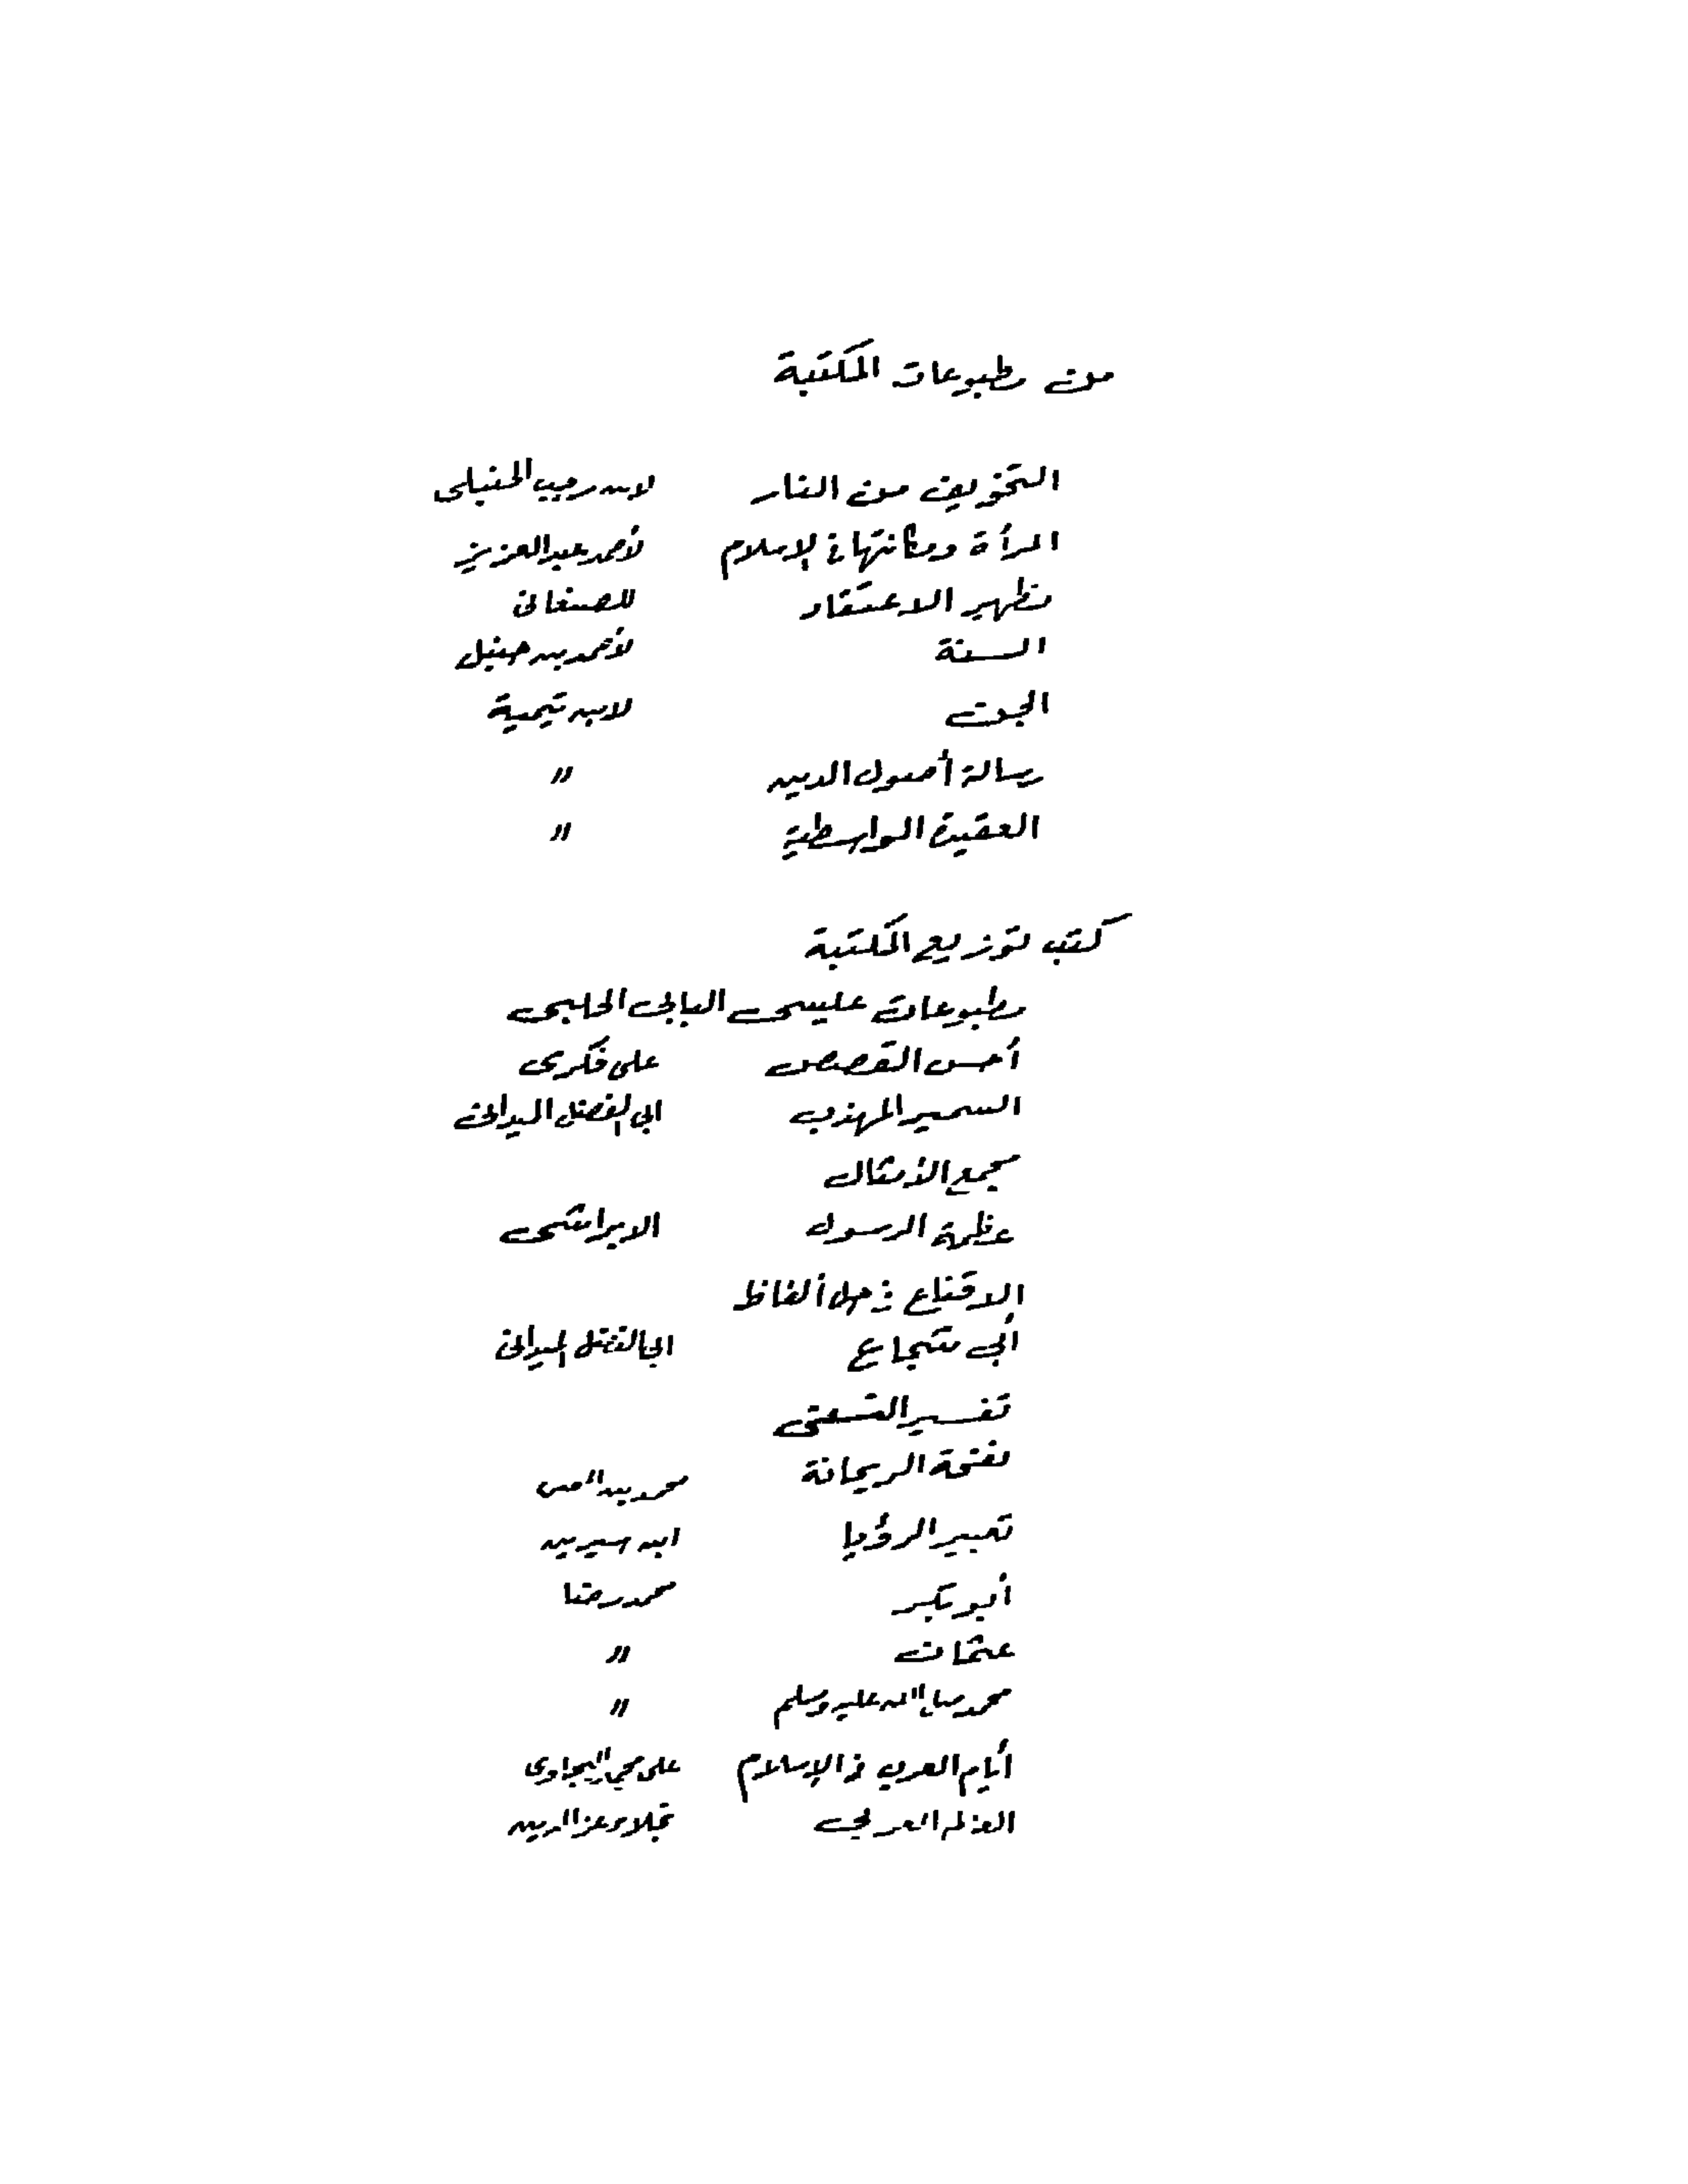 من مطبوعات المكتبة
التخويف من النار لابن رجب الحنبلى
المرأة ومكانتها فى الإسلام لأحمد عبد العزيز
تطهير الاعتقاد للصنعانى
السنة لأحمد بن حنبل
الجن لابن تيمية
رسالة أصول الدين "
العقيدة الواسطية "
كتب توزيع المكتبة
مطبوعات عيسى البابى الحلبى
أحسن القصص على فكرى
السمير المهذب ابى الفضل الميدانى
مجمع الأمثال
عظمة الرسول الابراشى
الاقناع فى حل ألفاظ
أبى شجاع ابى الفضل الميدانى
تفسير النسفى
نفحة الريحانة محمد
تعبير الرؤيا ابن سيرين
أبو بكر محمد رضا
عثمان "
محمد صلى الله عليه وسلم "
أيام العرب فى الإسلام على البجاوى
العالم العربى نجلاء عز الدين